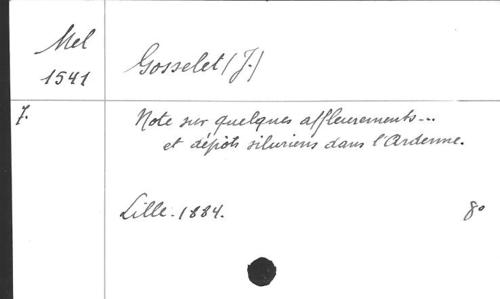 Mel
1541
Gosselet (J.)
7.
Note sur quelques affleurements...
et dépôts siluriens dans l'Ardenne.
Lille. 1884.
8°